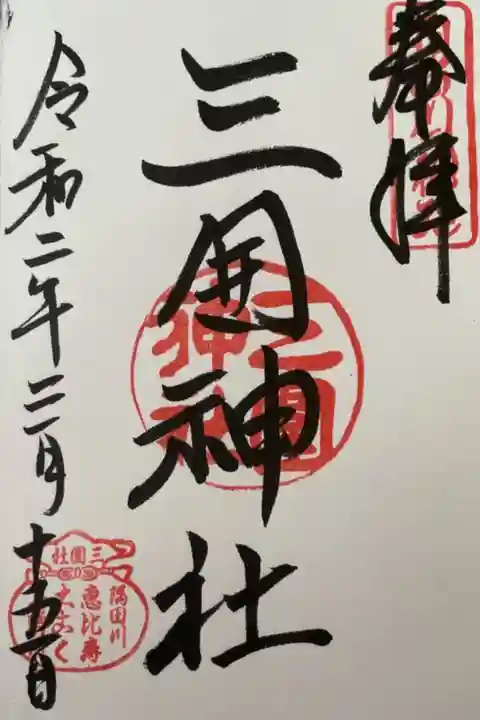 奉拝
三囲神社
三圍神社
令和二年三月十五日
三圍社
隅田川
恵比寿
大こく